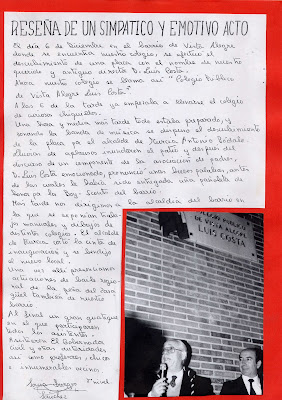 RESEÑA DE UN SIMPATICO Y EMOTIVO ACTO
El día 6 de Diciembre en el barrio de Vista Alegre
donde se encuentra nuestro colegio, se efectuó el
descubrimiento de una placa con el nombre de nuestro
querido y antiguo director D. Luis Costa.
Ahora nuestro colegio se llama así "Colegio Público
de Vista Alegre Luis Costa".
A las 6 de la tarde ya empezaba a llenarse el colegio
de curiosos chiquillos.
Una hora y media más tarde todo estaba preparado, y
sonando la banda de música se dispuso el descubrimiento
de la placa por el alcalde de Murcia Antonio Bódalo.
Lluvia de aplausos inundaron el patio y después del
descanso de un componente de la asociación de padres,
D. Luis Costa emocionado, pronunció unas breves palabras, antes
de las cuales le había sido entregada una pañoleta de
honor por la Boy-Scouts del barrio.
Mas tarde nos dirigimos a la alcaldía del barrio en
la que se exponían traba-
jos manuales y dibujos de
distintos colegios. El alcalde
de Murcia cortó la cinta de
inauguración y se bendijo
el nuevo local.
Una vez allí presenciamos
actuaciones de baile regio-
nal de la peña del
también de nuestro
barrio.
Al final un gran
en el que participaron
todos los asistentes.
Asistieron El Gobernador
Civil y otras autoridades
así como profesores, chicos
e innumerables vecinos.
Sánchez
nivel
DE VISTA ALEGRE
LUIS COSTA